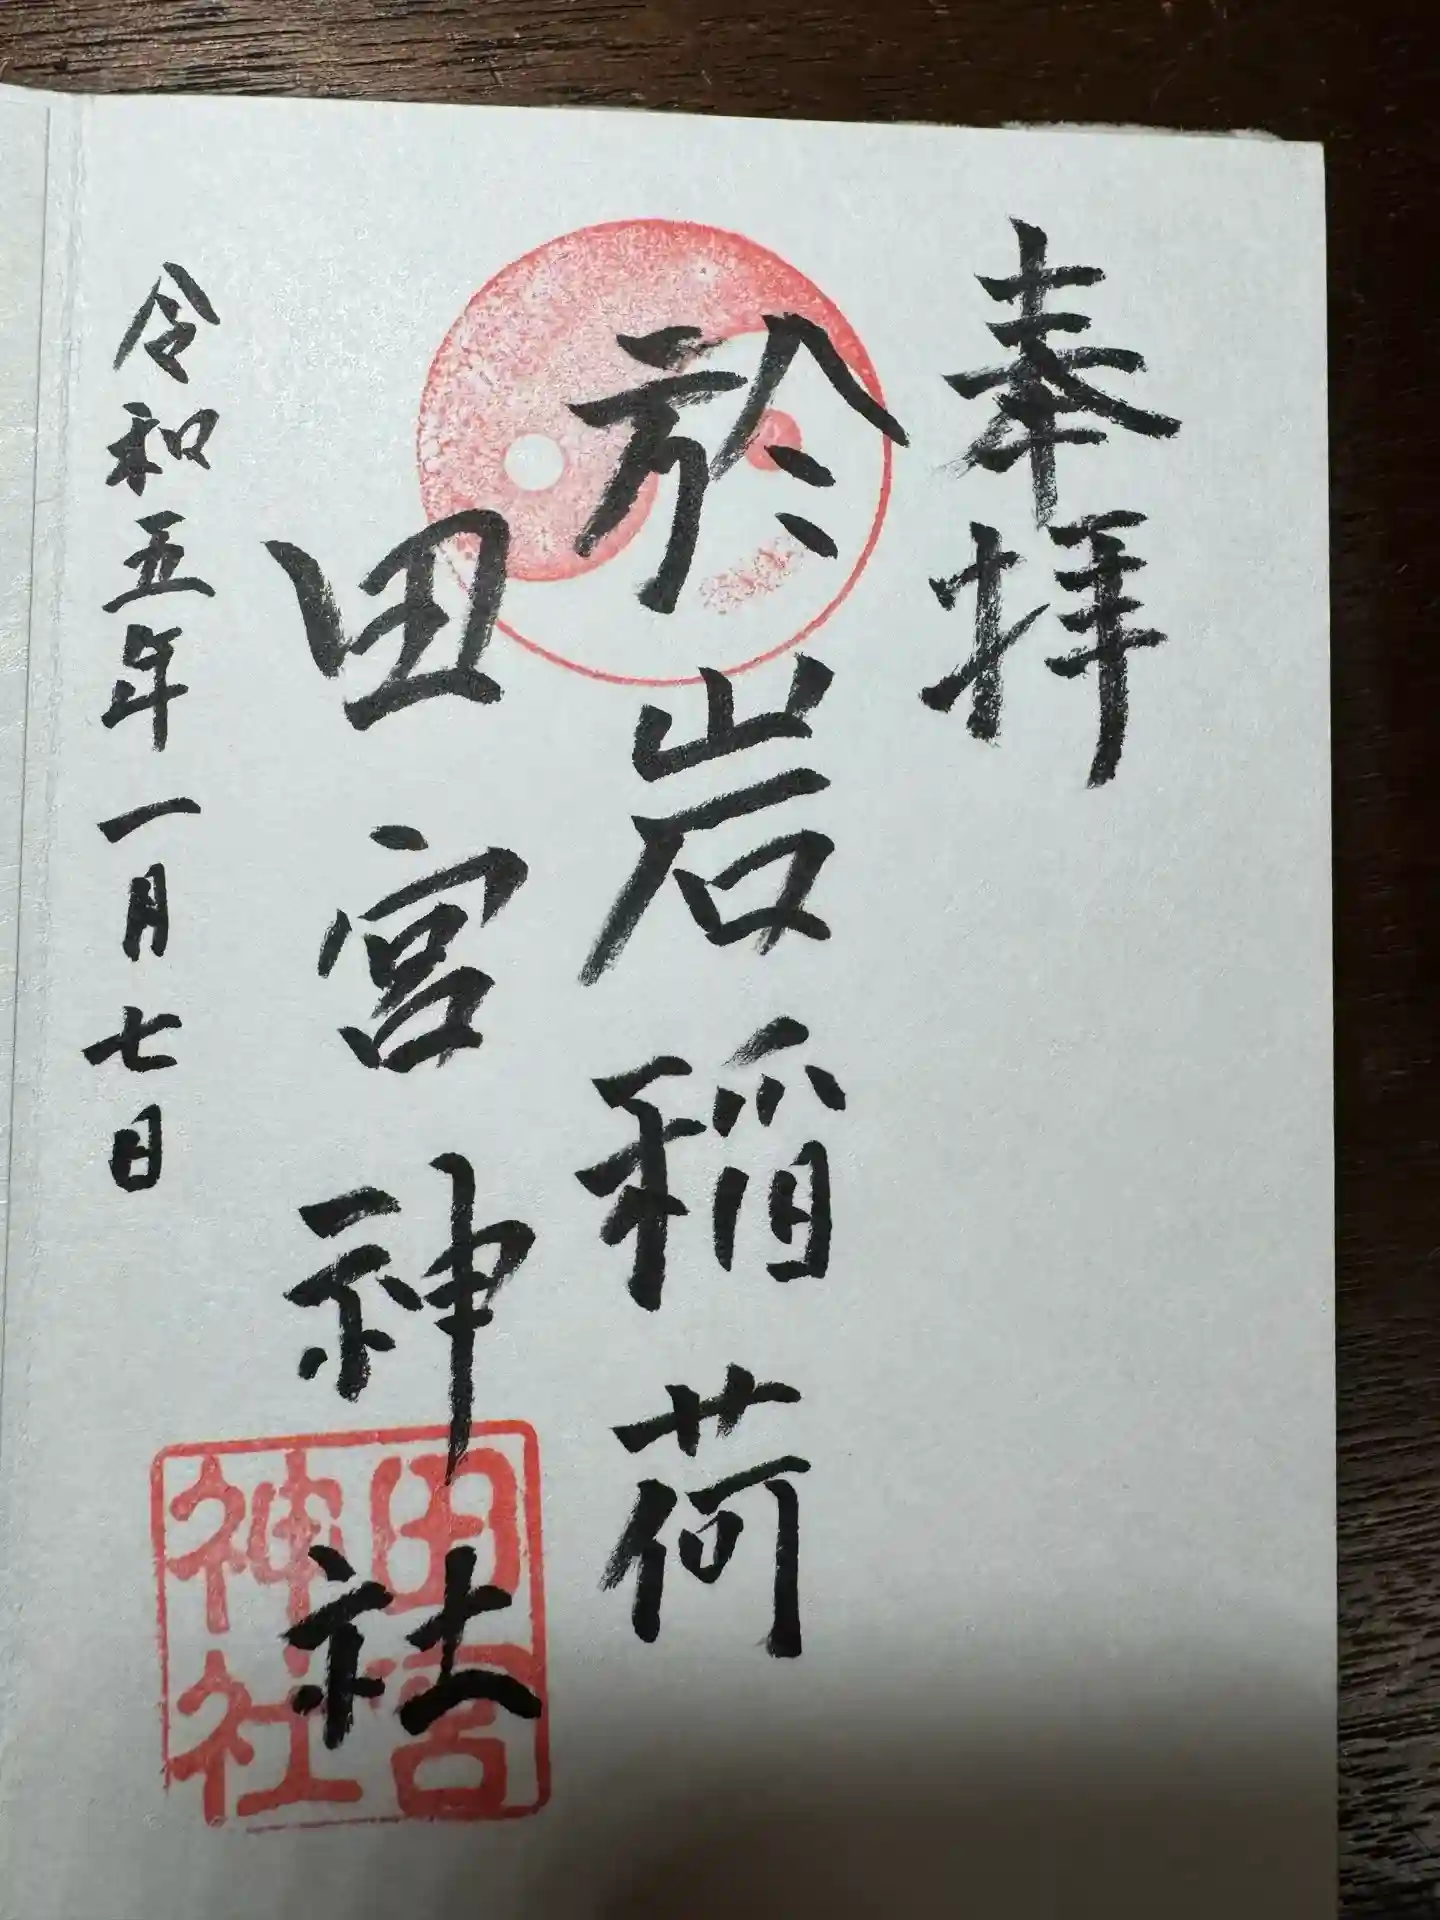 奉拝
於岩稲荷
田宮神社
令和五年一月七日
田宮
神社